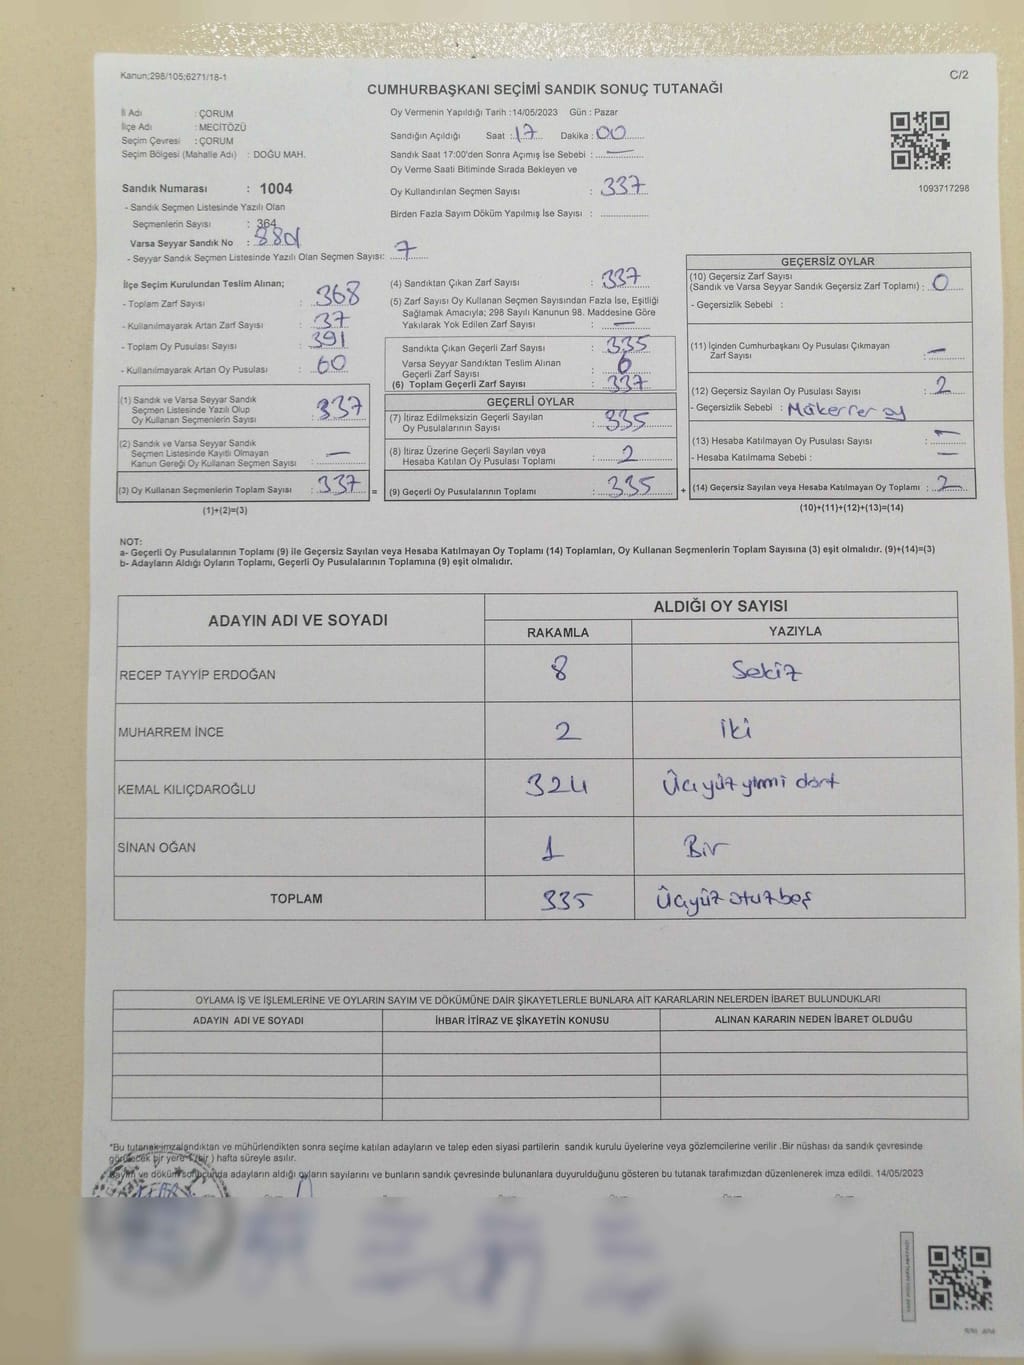 Kanun:298/105;6271/18-1
C/2
CUMHURBAŞKANI SEÇİMİ SANDIK SONUÇ TUTANAĞI
İl Adı : ÇORUM
İlçe Adı : MECİTÖZÜ
Seçim Çevresi : ÇORUM
Seçim Bölgesi (Mahalle Adı) : DOĞU MAH.
Sandık Numarası : 1004
- Sandık Seçmen Listesinde Yazılı Olan
Seçmenlerin Sayısı : 364
Varsa Seyyar Sandık No :
- Seyyar Sandık Seçmen Listesinde Yazılı Olan Seçmen Sayısı: 7
Oy Vermenin Yapıldığı Tarih :14/05/2023 Gün : Pazar
Sandığın Açıldığı Saat : 17 Dakika : 00
Sandık Saat 17:00'den Sonra Açımış İse Sebebi : —
Oy Verme Saati Bitiminde Sırada Bekleyen ve
Oy Kullandırılan Seçmen Sayısı : 337
Birden Fazla Sayım Döküm Yapılmış İse Sayısı :
1093717298
İlçe Seçim Kurulundan Teslim Alınan;
- Toplam Zarf Sayısı : 368
- Kullanılmayarak Artan Zarf Sayısı : 37
- Toplam Oy Pusulası Sayısı : 391
- Kullanılmayarak Artan Oy Pusulası : 60
(1) Sandık ve Varsa Seyyar Sandık
Seçmen Listesinde Yazılı Olup
Oy Kullanan Seçmenlerin Sayısı : 337
(2) Sandık ve Varsa Seyyar Sandık
Seçmen Listesinde Kayıtlı Olmayan
Kanun Gereği Oy Kullanan Seçmen Sayısı : —
(3) Oy Kullanan Seçmenlerin Toplam Sayısı : 337 =
(1)+(2)=(3)
(4) Sandıktan Çıkan Zarf Sayısı : 337
(5) Zarf Sayısı Oy Kullanan Seçmen Sayısından Fazla İse, Eşitliği
Sağlamak Amacıyla; 298 Sayılı Kanunun 98. Maddesine Göre
Yakılarak Yok Edilen Zarf Sayısı : —
Sandıkta Çıkan Geçerli Zarf Sayısı : 335
Varsa Seyyar Sandıktan Teslim Alınan
Geçerli Zarf Sayısı : 6
(6) Toplam Geçerli Zarf Sayısı : 337
GEÇERLİ OYLAR
(7) İtiraz Edilmeksizin Geçerli Sayılan
Oy Pusulalarının Sayısı : 335
(8) İtiraz Üzerine Geçerli Sayılan veya
Hesaba Katılan Oy Pusulası Toplamı : 2
(9) Geçerli Oy Pusulalarının Toplamı : 335 +
GEÇERSİZ OYLAR
(10) Geçersiz Zarf Sayısı
(Sandık ve Varsa Seyyar Sandık Geçersiz Zarf Toplamı) : 0
- Geçersizlik Sebebi :
(11) İçinden Cumhurbaşkanı Oy Pusulası Çıkmayan
Zarf Sayısı : —
(12) Geçersiz Sayılan Oy Pusulası Sayısı : 2
- Geçersizlik Sebebi : Mükerrer oy
(13) Hesaba Katılmayan Oy Pusulası Sayısı : —
- Hesaba Katılmama Sebebi : —
(14) Geçersiz Sayılan veya Hesaba Katılmayan Oy Toplamı : 2
(10)+(11)+(12)+(13)=(14)
NOT:
a- Geçerli Oy Pusulalarının Toplamı (9) ile Geçersiz Sayılan veya Hesaba Katılmayan Oy Toplamı (14) Toplamları, Oy Kullanan Seçmenlerin Toplam Sayısına (3) eşit olmalıdır. (9)+(14)=(3)
b- Adayların Aldığı Oyların Toplamı, Geçerli Oy Pusulalarının Toplamına (9) eşit olmalıdır.
ADAYIN ADI VE SOYADI
ALDIĞI OY SAYISI
RAKAMLA YAZIYLA
RECEP TAYYİP ERDOĞAN 8 Sekiz
MUHARREM İNCE 2 iki
KEMAL KILIÇDAROĞLU 324 Üçyüz yirmi dört
SİNAN OĞAN 1 Bir
TOPLAM 335 Üçyüz otuz beş
OYLAMA İŞ VE İŞLEMLERİNE VE OYLARIN SAYIM VE DÖKÜMÜNE DAİR ŞİKAYETLERLE BUNLARA AİT KARARLARIN NELERDEN İBARET BULUNDUKLARI
ADAYIN ADI VE SOYADI İHBAR İTİRAZ VE ŞİKAYETİN KONUSU ALINAN KARARIN NEDEN İBARET OLDUĞU
*Bu tutanak imzalandıktan ve mühürlendikten sonra seçime katılan adayların ve talep eden siyasi partilerin sandık kurulu üyelerine veya gözlemcilerine verilir .Bir nüshası da sandık çevresinde
görülecek bir yere 1 (bir ) hafta süreyle asılır.
Sayım ve döküm sonucunda adayların aldığı oyların sayılarını ve bunların sandık çevresinde bulunanlara duyurulduğunu gösteren bu tutanak tarafımızdan düzenlenerek imza edildi. 14/05/2023